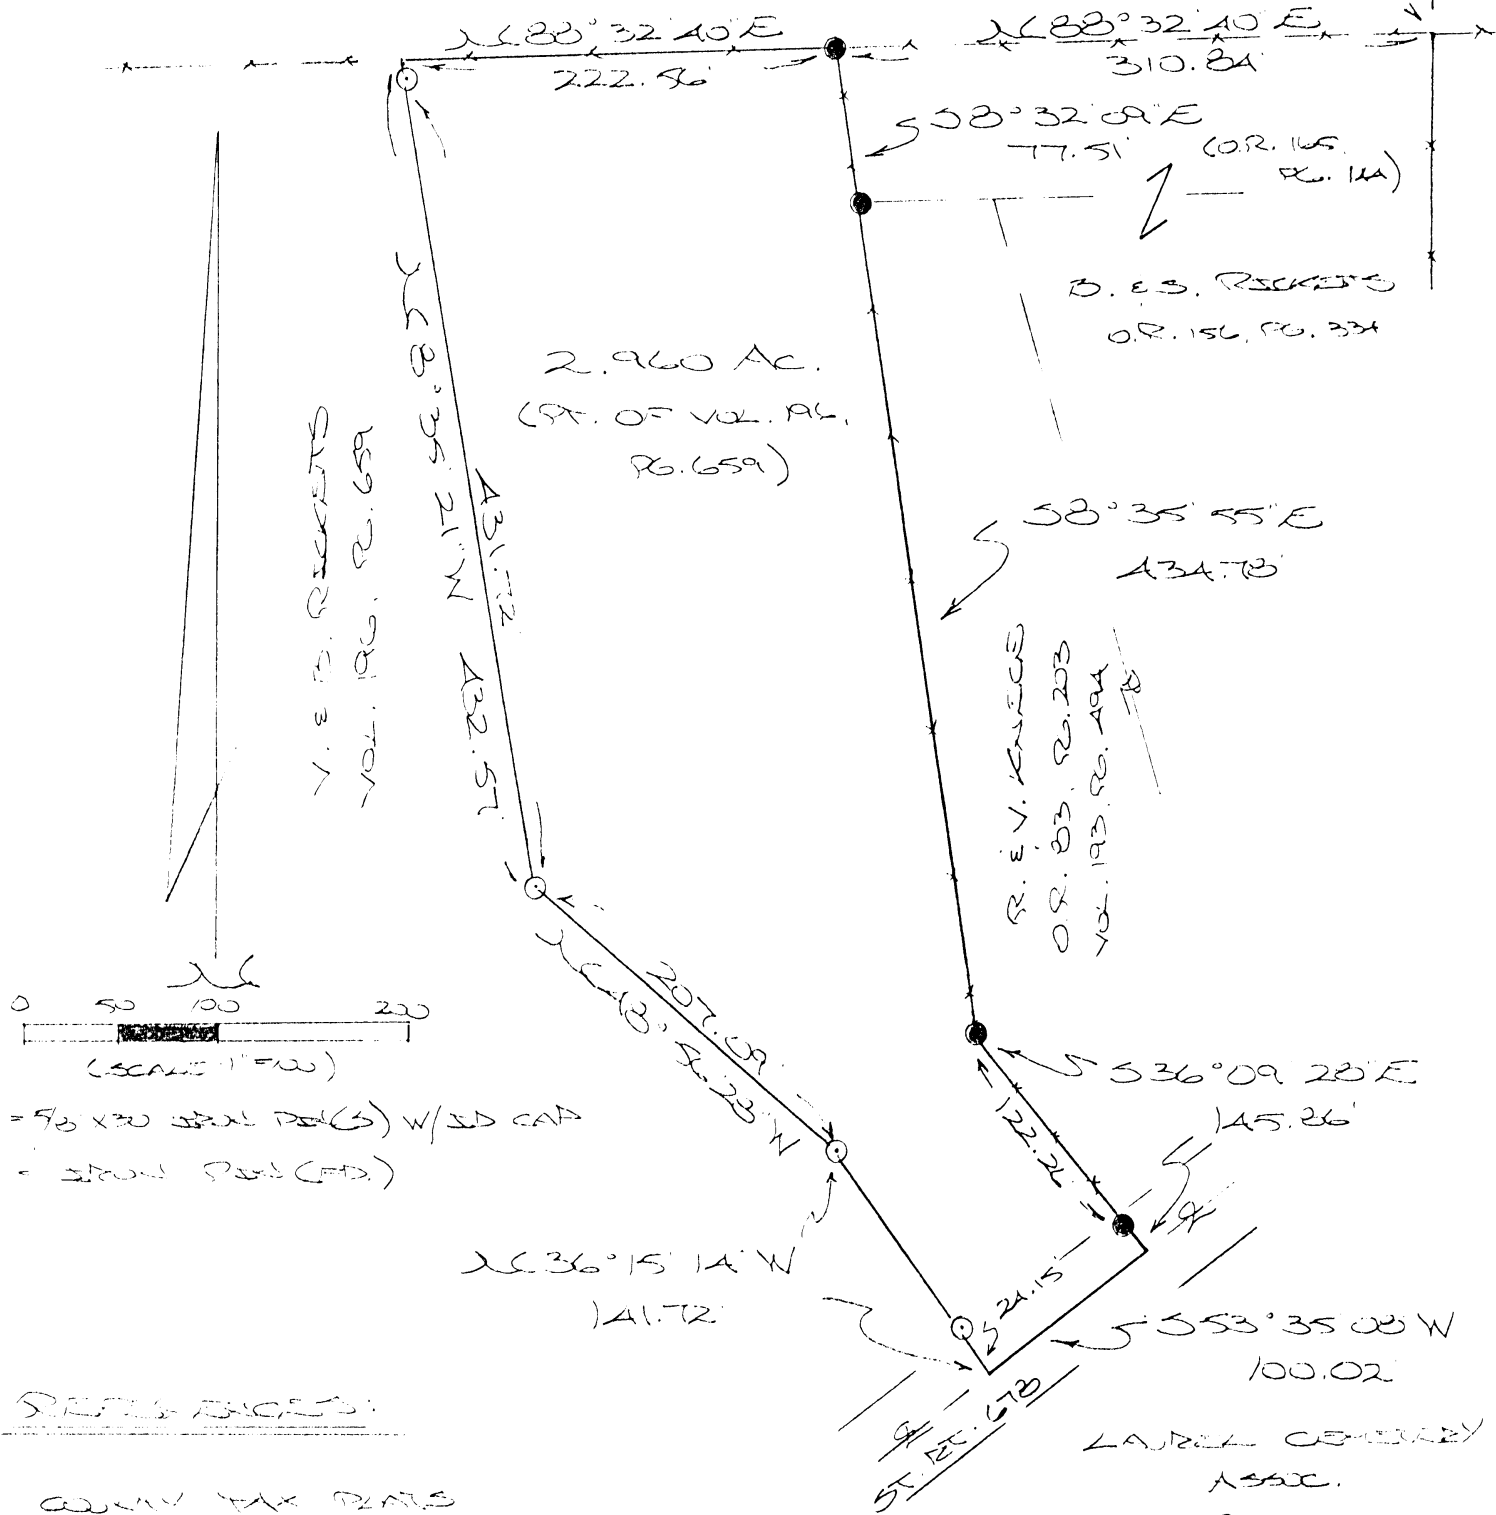 N 88° 32' 40" E
222.56'
N 88° 32' 40" E
310.84'
S 8° 32' 09" E
77.51'
(O.R. 165,
PG. 144)
B. & S. RICKETTS
O.R. 156, PG. 334
2.960 AC.
(PT. OF VOL. 196,
PG. 659)
N 8° 35' 21" W 432.57'
431.72
V. & B. RICKETTS
VOL. 196, PG. 659
S 8° 35' 55" E
434.78'
R. & V. KNEECE
O.R. 83, PG. 203
VOL. 193, PG. 494
N
0 50 100 200
(SCALE 1"=100')
= 5/8 X 30 IRON PIN(S) W/ID CAP
- IRON PIN (FD.)
207.09
N 48° 56' 23" W
S 36° 09' 28" E
145.86'
122.26
N 36° 15' 14" W
141.72'
24.15'
S 53° 35' 08" W
100.02'
ST. RT. 678
LAUREL CEMETERY
ASSOC.
REFERENCES:
COUNTY TAX PLATS